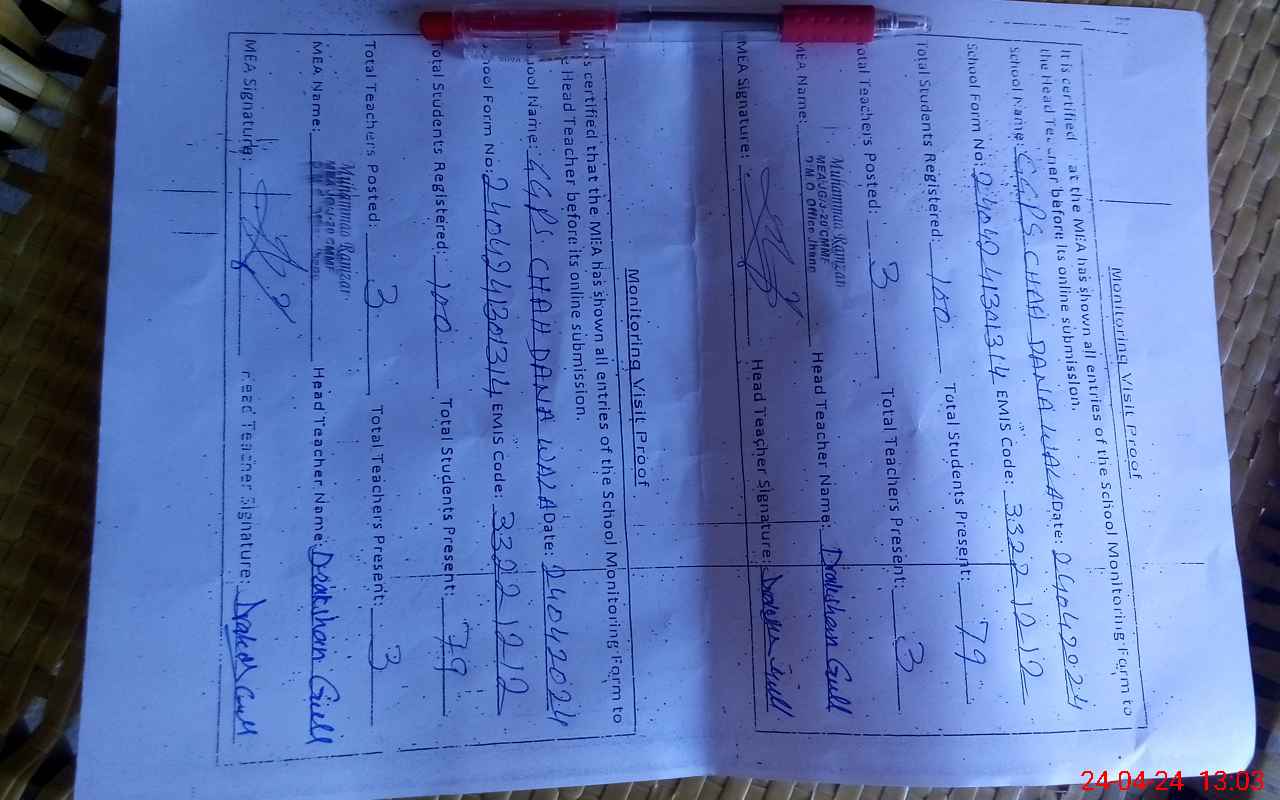 Monitoring Visit Proof
It is certified at the MEA has shown all entries of the School Monitoring Form to
the Head Teacher before its online submission.
School Name: G.G.P.S. CHAH DANA WALA Date: 24042024
School Form No: 2404241301314 EMIS Code: 33221212
Total Students Registered: 100 Total Students Present: 79
Total Teachers Posted: 3 Total Teachers Present: 3
Muhammad Ramzan
D.M.O Office Jhang
MEA Name: Head Teacher Name: Drakshan Gull
MEA Signature: Head Teacher Signature: Gull
Monitoring Visit Proof
certified that the MEA has shown all entries of the School Monitoring Form to
Head Teacher before its online submission.
Name: G.G.P.S. CHAH DANA WALA Date: 24042024
School Form No: 2404241301314 EMIS Code: 33221212
Total Students Registered: 100 Total Students Present: 79
Total Teachers Posted: 3 Total Teachers Present: 3
Muhammad Ramzan
MEA Name: Head Teacher Name: Drakshan Gull
MEA Signature: Head Teacher Signature: Gull
24-04-24 13:03